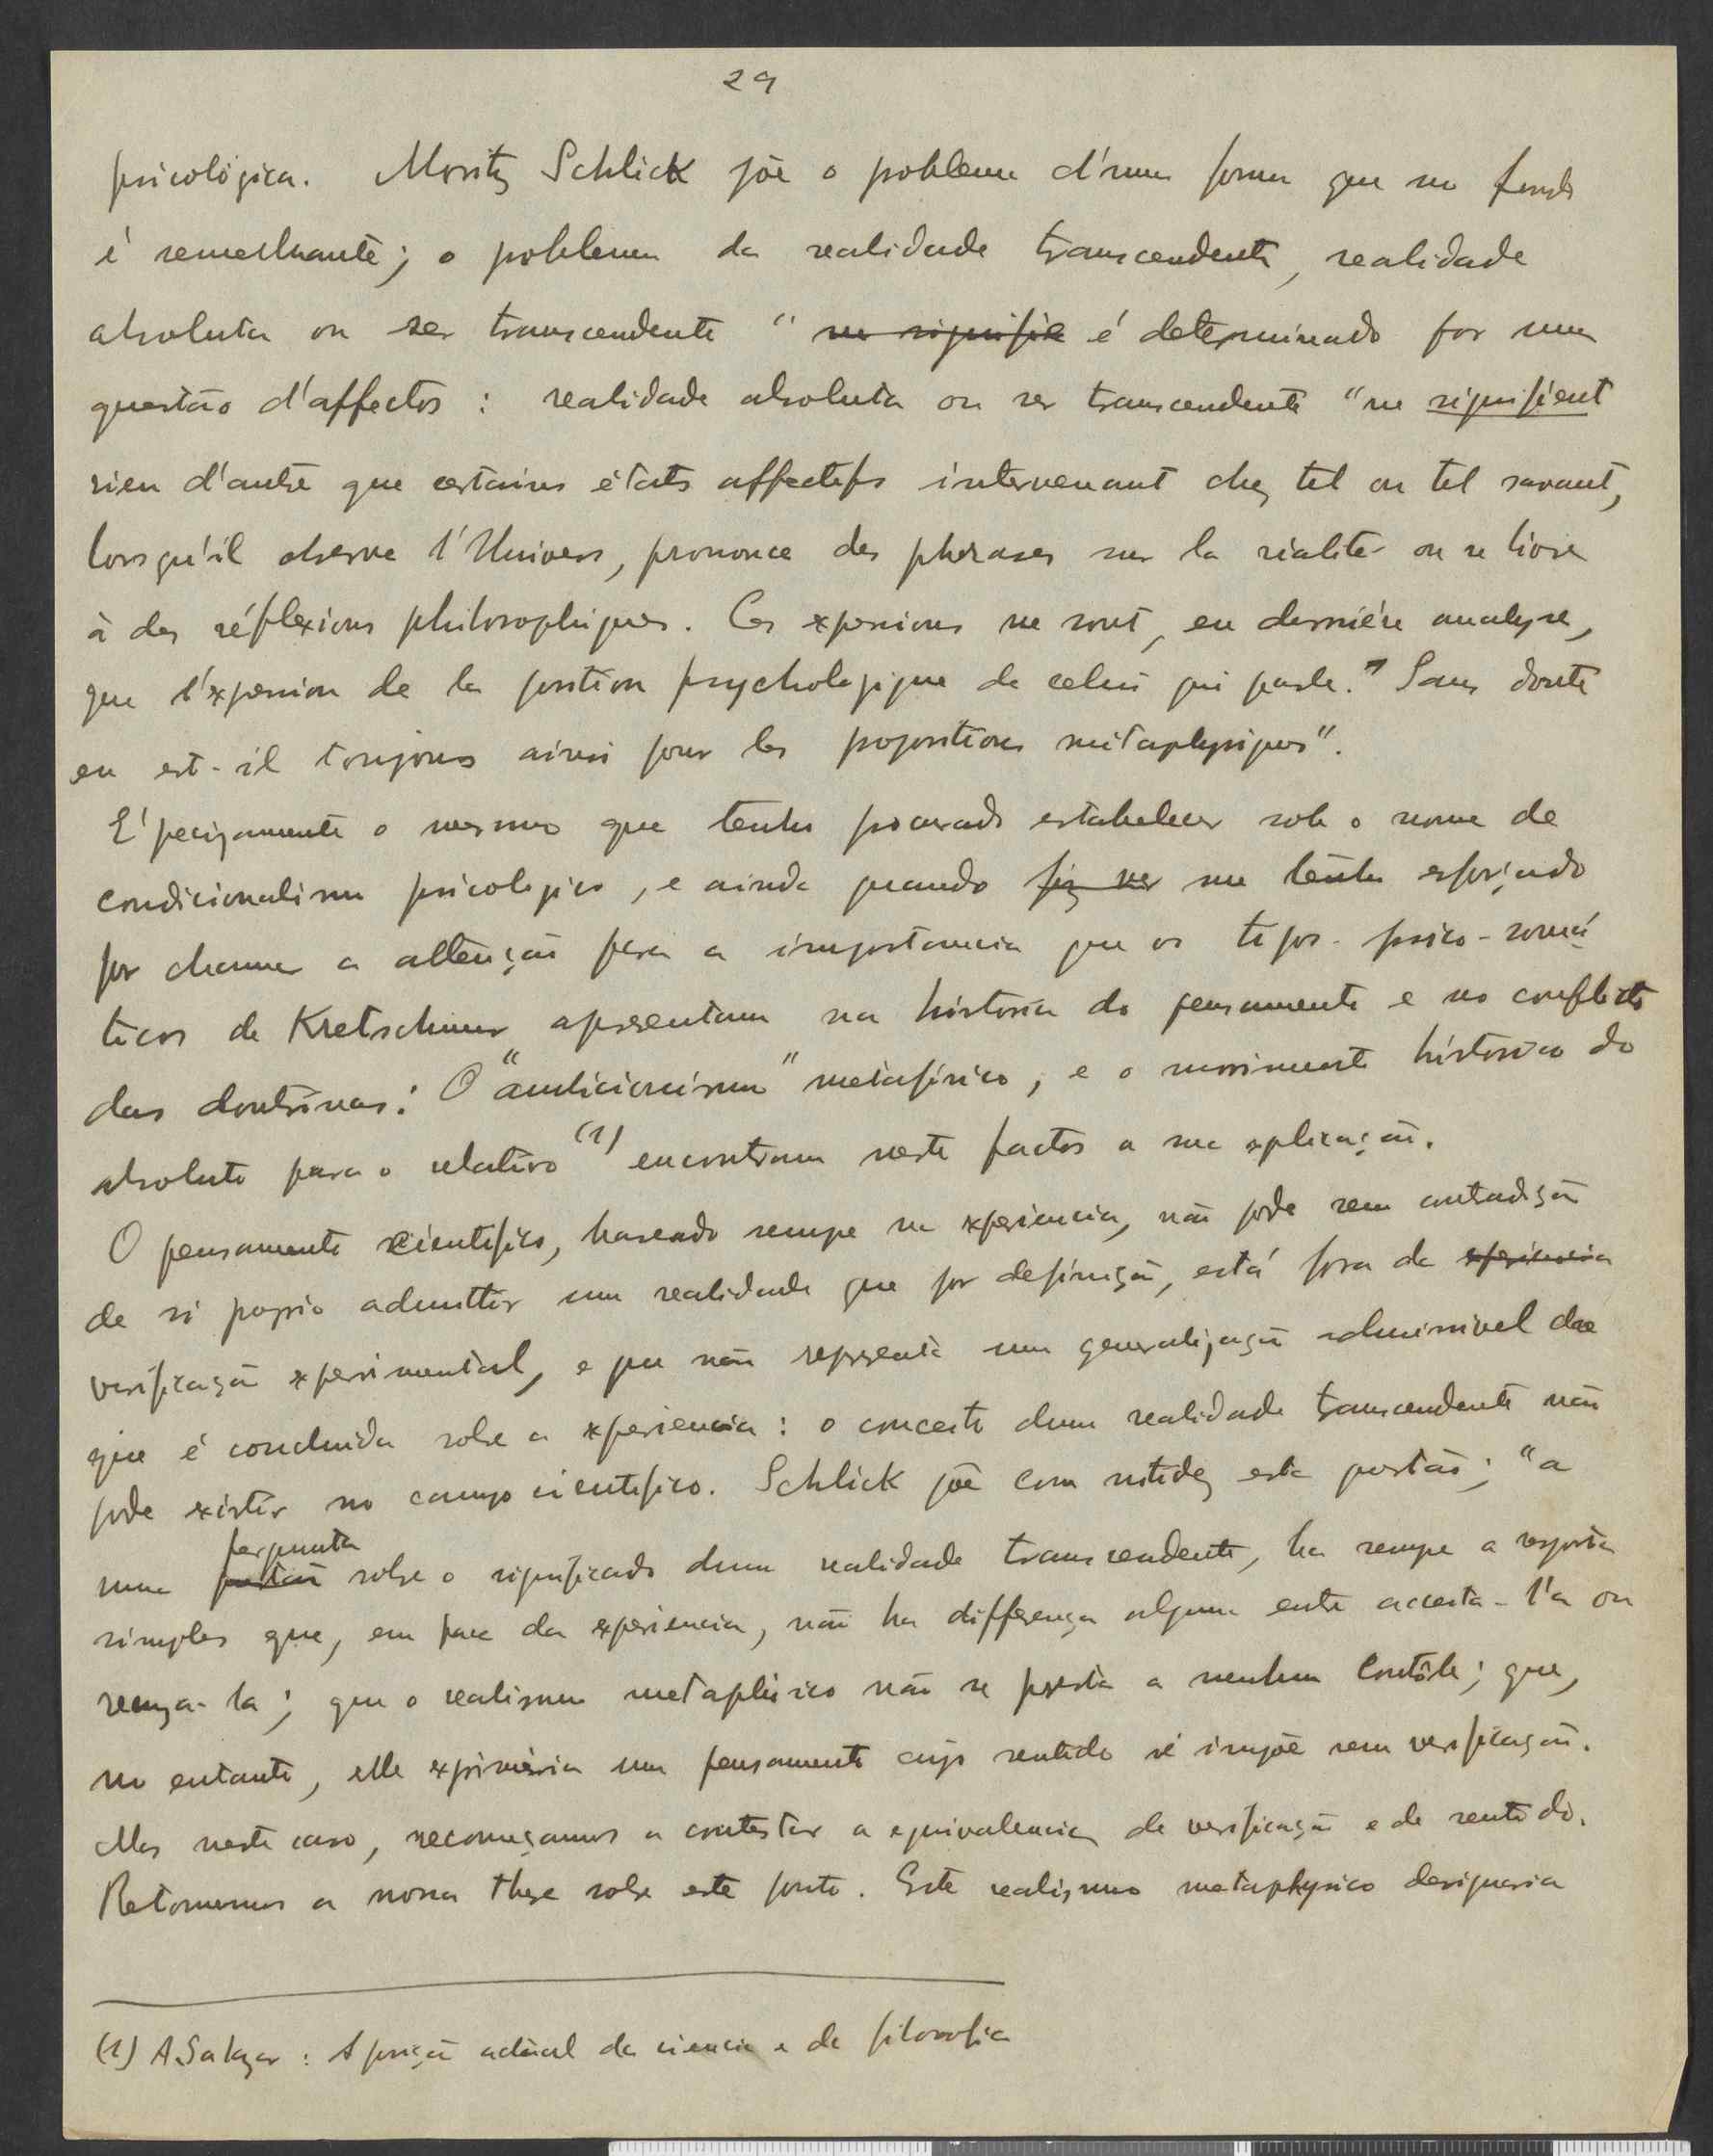 29
psicológica. Moritz Schlick põe o problema d'uma forma que no fundo
é semelhante; o problema da realidade transcendente, realidade
absoluta ou ser transcendente " ne signifie é determinado por uma
questão d'affectos : realidade absoluta ou ser transcendente "ne signifient
rien d'autre que certains états affectifs intervenant chez tel ou tel savant,
lorsqu'il observe l'Univers, prononce des phrases sur la réalité ou se livre
à des réflexions philosophiques. Ces expressions ne sont, en dernière analyse,
que l'expression de la position psychologique de celui qui parle." Sans doute
en est-il toujours ainsi pour les propositions métaphysiques".
E' precizamente o mesmo que tenho procurado estabelecer sob o nome de
condicionalismo psicologico, e ainda quando fiz ver me tenho esforçado
por chamar a attenção para a importancia que os tipos psico-somá
ticos de Kretschmer apresentam na historia do pensamento e no conflicto
das doutrinas: O " " metafisico, e o movimento historico do
absoluto para o relativo (1) encontram neste factos a sua explicação.
O pensamento cientifico, baseado sempre na experiencia, não pode sem contradição
de si proprio admittir uma realidade que por definição, está fora da experiencia
verificação experimental, e que não representa uma generalização admissivel do
que é concluida sobre a experiencia : o conceito duma realidade transcendente não
pode existir no campo cientifico. Schlick põe com nitidez esta questão; "a
pergunta
uma questão sobre o significado duma realidade transcendente, ha sempre a resposta
simples que, em face da experiencia, não ha differença alguma entre acceita-l'a ou
regeita-la; que o realismo metaphisico não se presta a nenhum contrôle; que,
no entanto, elle exprimiria um pensamento cujo sentido se impõe sem verificação.
Mas neste caso, recomeçamos a contestar a equivalencia de verificação e de sentido.
Retomemos a nossa these sobre este ponto. Este realismo metaphysico designaria
(1) A. Salazar : A posição actual da ciencia e da filosofia